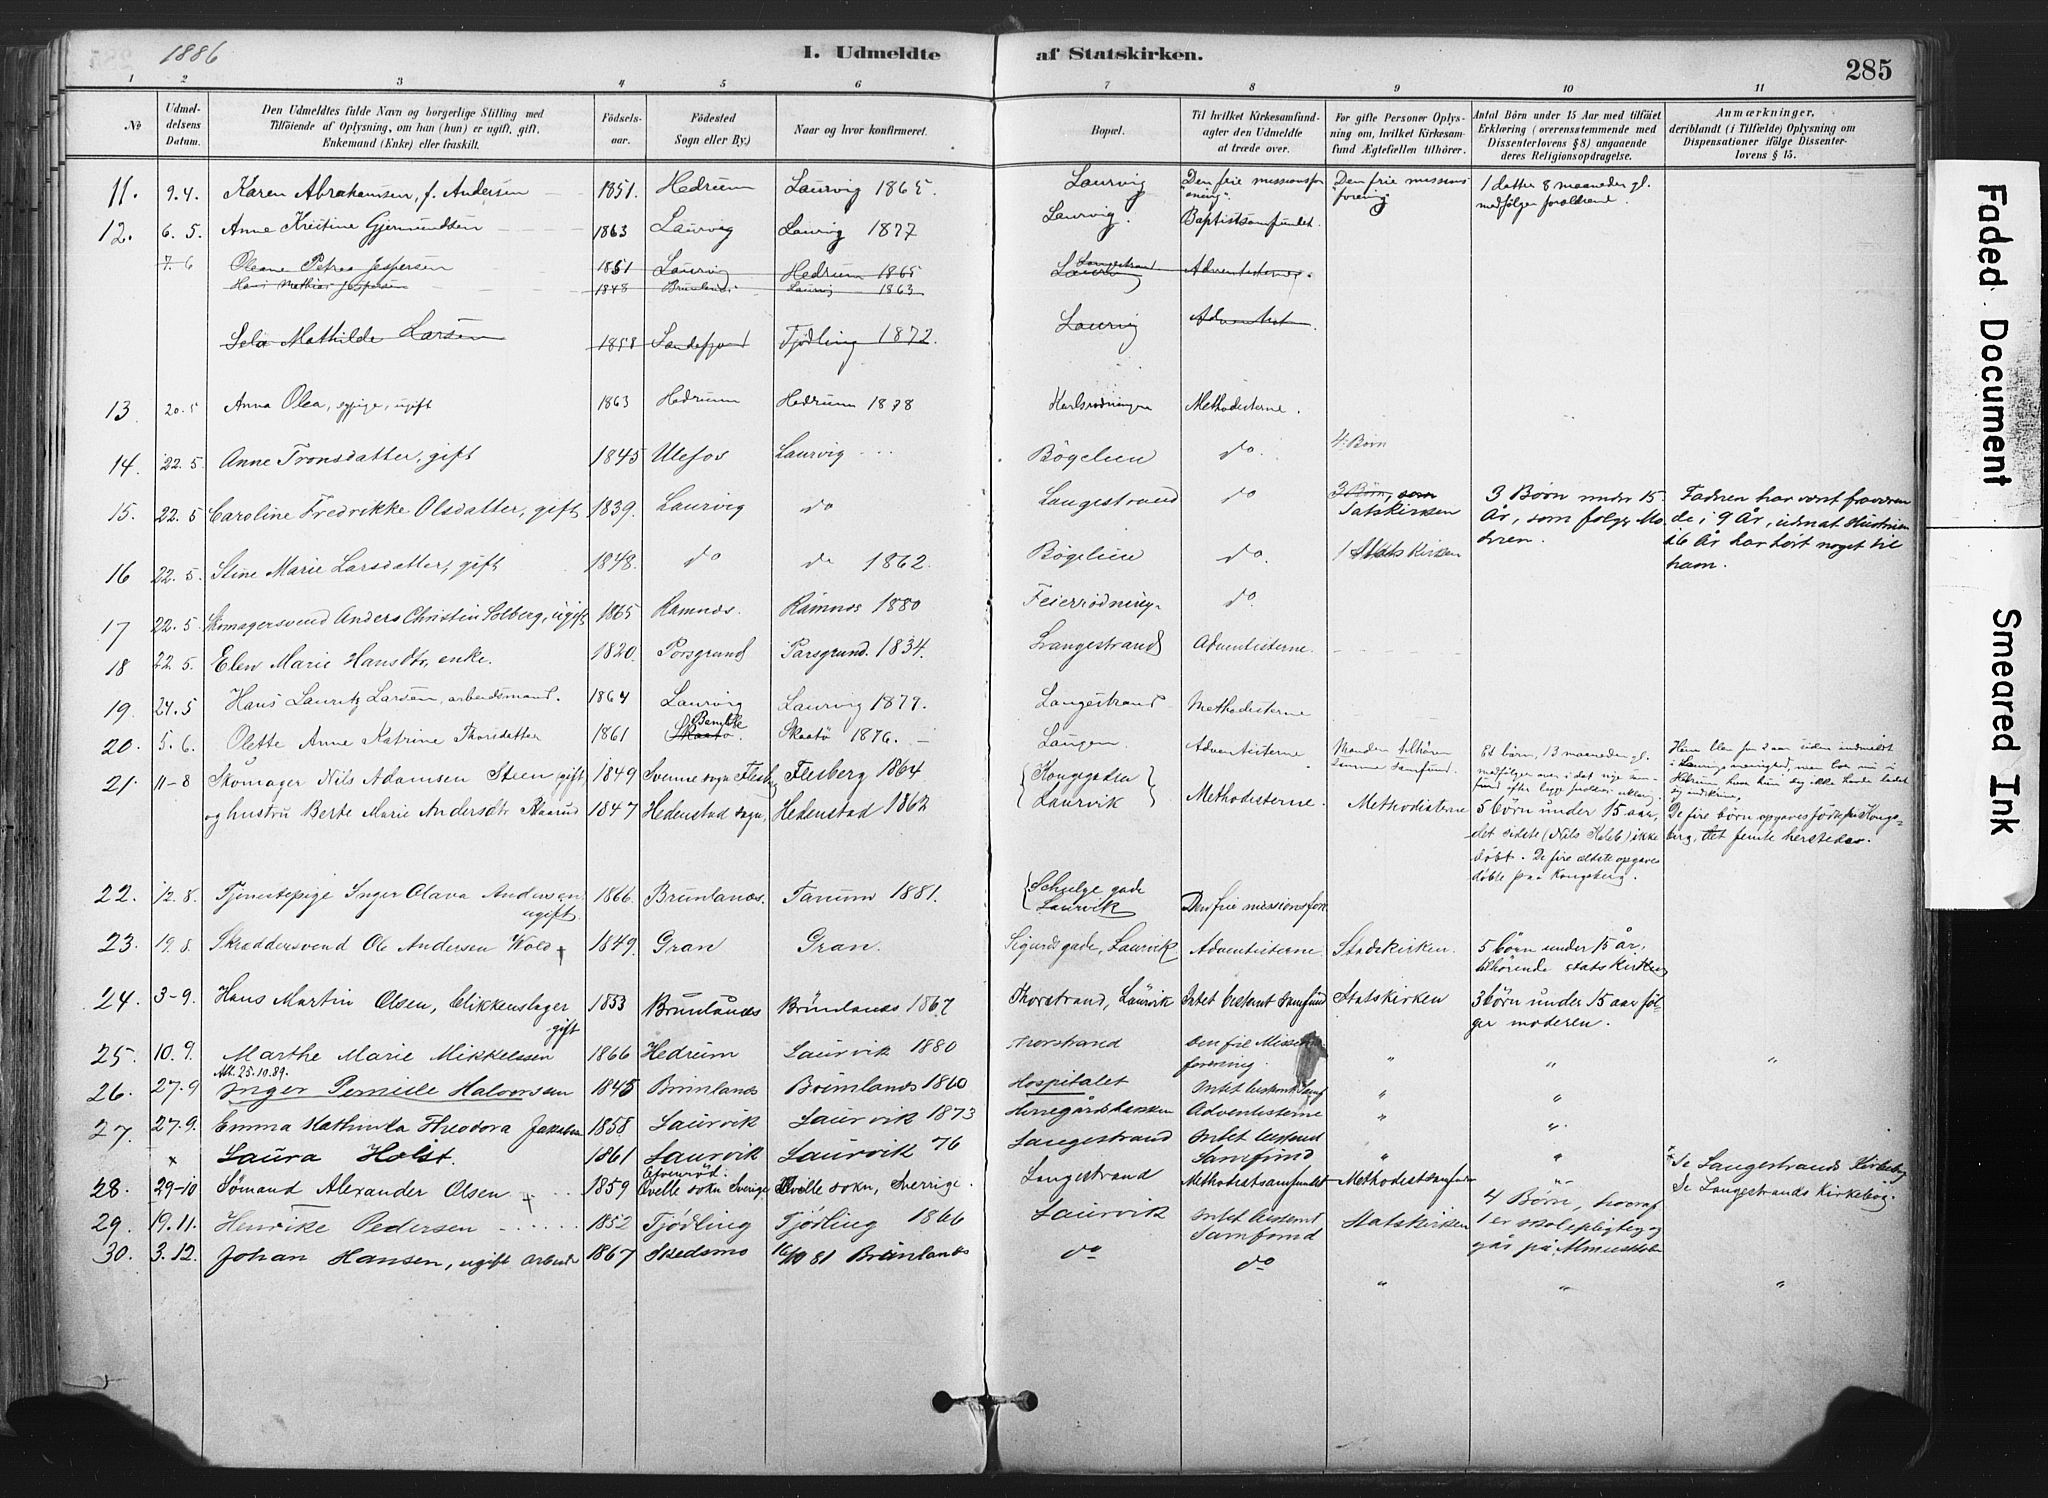 1886
I. Udmeldte af Statskirken.
285
1 2 3 4 5 6 7 8 9 10 11
No
Udmeldelsens Datum.
Den Udmeldtes fulde Navn og borgerlige Stilling med
Tilföiende af Oplysning, om han (hun) er ugift, gift,
Enkemand (Enke) eller fraskilt.
Födselsaar.
Födested
Sogn eller By.)
Naar og hvor konfirmeret.
Bopæl.
Til hvilket Kirkesamfund
agter den Udmeldte
at træde over.
For gifte Personer Oplysning
om, hvilket Kirkesamfund
Ægtefællen tilhörer.
Antal Börn under 15 Aar med tilföiet
Erklæring (overensstemmende med
Dissenterlovens § 8) angaaende
deres Religionsopdragelse.
Anmærkninger,
deriblandt (i Tilfælde) Oplysning om
Dispensationer ifölge Dissenterlovens § 15.
11. 9.4. Karen Abrahamsen, f. Andersen 1851. Hedrum Laurvig 1865. Laurvig Den frie missionsforening. Den frie missionsforening 1 datter 8 maaneder gl. medfølger forældrene.
12. 6.5. Anne Kristine Gjermundsen 1863 Laurvig Laurvig 1877 Laurvig. Baptistsamfundet.
7.6 Oleane Petrea Jespersen 1851 Laurvig Hedrum 1865 Laurvig Langestrand Adventisterne.
Hans Mathias Jespersen 1848 Brunlanes Laurvig 1863
Mathilde Larsen 1858 Sandefjord Tjødling 1872. Laurvig Adventist.
13 20.5 Anna Olea, ugift 1863 Hedrum Hedrum 1878 Methodisterne.
14. 22.5. Anne Tronsdatter, gift 1845 Ulefos Laurvig Bögelien do. 4 Børn
15. 22.5 Caroline Fredrikke Olsdatter, gift 1839. Laurvig do Langestrand do 3 Børn, som Statskirken 3 Børn under 15 År, som følger Modren. Fadren har vært fraværende i 9 År, uden at Hustruen i 6 År har hørt noget til ham.
16 22.5. Stine Marie Larsdatter, gift 1848. do do 1862. Bögelien do. 1 Statskirken
17 22.5 Skomagersvend Anders Christin Solberg, ugift 1865 Ramnes. Ramnes 1880 do.
18 22.5. Elen Marie Hansdtr, enke. 1820. Porsgrund Porsgrund. 1834. Langestrand Adventisterne.
19. 24.5 Hans Lauritz Larsen, arbeidsmand. 1864 Laurvig Laurvig 1879. Langestrand Methodisterne
20. 5.6. Olette Anne Katrine Thorsdatter 1861 Skaatø Bamble Skaatø 1876. Langen. Adventisterne Manden tilhører samme Samfund. Et børn, 13 maaneder gl.
21. 11-8 Skomager Nils Adamsen Steen, gift 1849 Svenne sogn Flesberg Flesberg 1864 Kongegaden Laurvik Methodisterne. Methodisterne
og hustru Berte Marie Andersdtr 1847 Hedenstad sogn, Hedenstad 1862 5 børn under 15 aar, det sidste (Nils Kaleb) ikke døbt. De fire ældste opgaves døbte paa Kongsberg. De fire børn opgaves født på Kongsberg, det femte hersteds.
22. 12.8. Tjenestepige Inger Olava Andersen, ugift. 1866. Brunlanes. Tanum 1881. Schulze gade Laurvik Den frie missionsfor.
23. 19.8. Skræddersvend Ole Andersen Wold 1849. Gran Gran. Sigurdsgade, Laurvik Adventisterne Stadskirken. 5 børn under 15 år, tilhörende statskirken
24. 3-9. Hans Martin Olsen, blikkenslager gift 1853 Brunlanes Brünlanes 1867 Thorstrand, Laurvik Intet bestemt samfund Statskirken 3 børn under 15 aar følger moderen.
25. 10.9. Marthe Marie Mikkelssen 1866 Hedrum Laurvik 1880 Torstrand Den frie Missionsforening. " " "
Att. 25.10.89.
26. 27.9 Inger Pernille Halvorsen 1845 Brunlanes Brunlanes 1860 Hospitalet Intet bestemt Samf " "
27. 27.9. Emma Kathinka Theodora Jakobsen 1858 Laurvik Laurvik 1873 Herregårdsbakken Adventisterne " "
x Laura Holst. 1861 Laurvik Laurvik 76 Langestrand Intet bestemt Samfund " " * Se Langestrands Kirkebog
28. 29-10 Sømand Alexander Olsen 1859 Qville sokn Sverige Qville sokn, Sverrige. Langestrand Methodistsamfundet Methodistsamfundet " Se Langestrands Kirkebog.
29. 19.11. Henrike Pedersen 1852 Tjödling Tjödling 1866 Laurvik Intet bestemt Samfund Statskirken 4 Børn, hvoraf 1 er skolepligtig og går på Almueskolen
30. 3.12. Johan Hansen, ugift arbeid 1867 Skedsmo 16/10 81 Brünlanes do do " " "
Faded Document
Smeared Ink